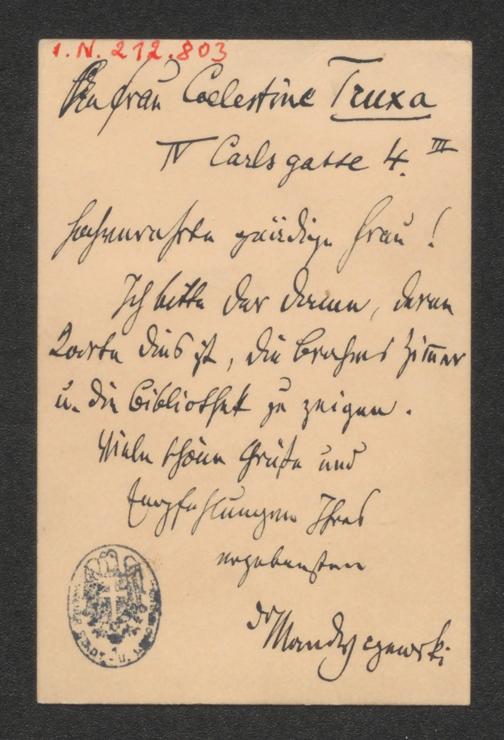 I.N. 212.803
An Frau Coelestine Truxa
IV Carlsgasse 4. III
Hochverehrte gnädige Frau!
Ich bitte der Dame, deren
Karte dies ist, die Brahms Zimmer
u. die Bibliothek zu zeigen.
Viele schöne Grüße und
Empfehlungen Ihres
ergebensten
Dr Mandyczewski